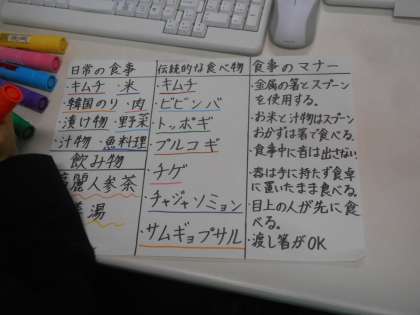 日常の食事
・キムチ ・米
・韓国のり ・肉
・漬け物 ・野菜
・汁物 ・魚料理
飲み物
麗人参茶
湯
伝統的な食べ物
・キムチ
・ビビンバ
・トッポギ
・プルコギ
・チゲ
・チャジャンミョン
・サムギョプサル
食事のマナー
・金属の箸とスプーン
を使用する。
・お米と汁物はスプーン
おかずは箸で食べる。
・食事中に音は出さない。
・器は手に持たず食卓
に置いたまま食べる。
・目上の人が先に食
べる。
・渡し箸がOK